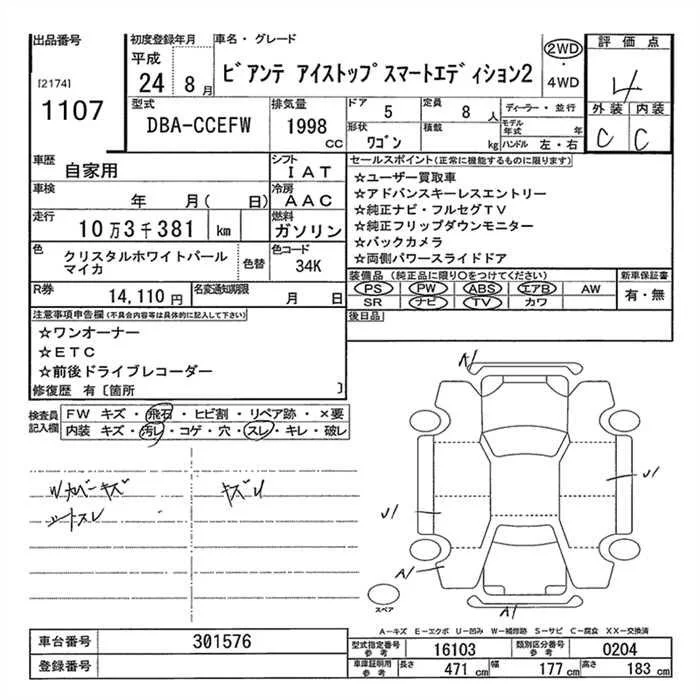 出品番号
[2174]
1107
初度登録年月
平成
24 8月
車名・グレード
ビアンテ アイストップスマートエディション2
2WD
・
4WD
評価点
4
外装 内装
C C
型式
DBA-CCEFW
排気量
1998
CC
ドア
5
定員
8人
形状
ワゴン
積載
kg
ディーラー・並行
モデル年式 年
ハンドル 左・右
車歴
自家用
シフト
IAT
車検
年 月( 日)
冷房
AAC
走行
10万3千381 km
燃料
ガソリン
色
クリスタルホワイトパール
マイカ
色替
色コード
34K
R券
14,110円
名変通知期限
月 日
セールスポイント(正常に機能するものに限ります)
☆ユーザー買取車
☆アドバンスキーレスエントリー
☆純正ナビ・フルセグTV
☆純正フリップダウンモニター
☆バックカメラ
☆両側パワースライドドア
装備品(純正品に限り○をつけてください)
PS PW ABS エアB AW
SR ナビ TV カワ
新車保証書
有・無
後日品
注意事項申告欄(不具合内容等は具体的に記入して下さい)
☆ワンオーナー
☆ETC
☆前後ドライブレコーダー
修復歴 有〔箇所 〕
検査員
記入欄
FW キズ・飛石・ヒビ割・リペア跡・×要
内装 キズ・汚レ・コゲ・穴・スレ・キレ・破レ
Wカバーキズ
シートスレ
キズU
A1
U1
U1
A1
A1
スペア
A-キズ E-エクボ U-凹み W-補修跡 S-サビ C-腐食 XX-交換済
車台番号
301576
登録番号
型式指定番号
参考
16103
類別区分番号
参考
0204
車庫証明用
参考
長さ
471 cm
幅
177 cm
高さ
183 cm